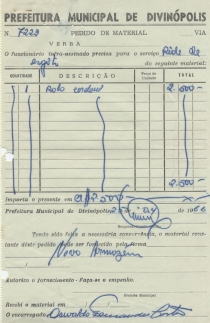 PREFEITURA MUNICIPAL DE DIVINÓPOLIS
N. 7229 PEDIDO DE MATERIAL VIA
VERBA
O funcionário infra-assinado precisa para o serviço Rêde de
esgôto do seguinte material:
QUANTIDADE DESCRIÇÃO Preço da Unidade TOTAL
1 Rolo 2.500-
2.500-
Importa o presente em Cr$ 2.500
Prefeitura Municipal de Divinópolis, de 1966
Tendo sido feita a necessária concorrência, o material cons-
tante dêste pedido deve ser fornecido pela firma
Novo Armazem
Autorizo o fornecimento - Faça-se o empenho
Prefeito Municipal
Recebi o material em
O encarregado, Oswaldo